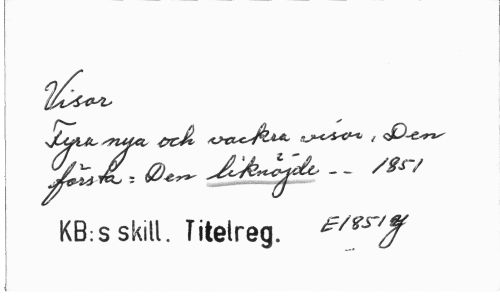 Visor
Fyra nya och vackra visor, Den
första: Den liknöjde -- 1851
KB:s skill. Titelreg. E1851y